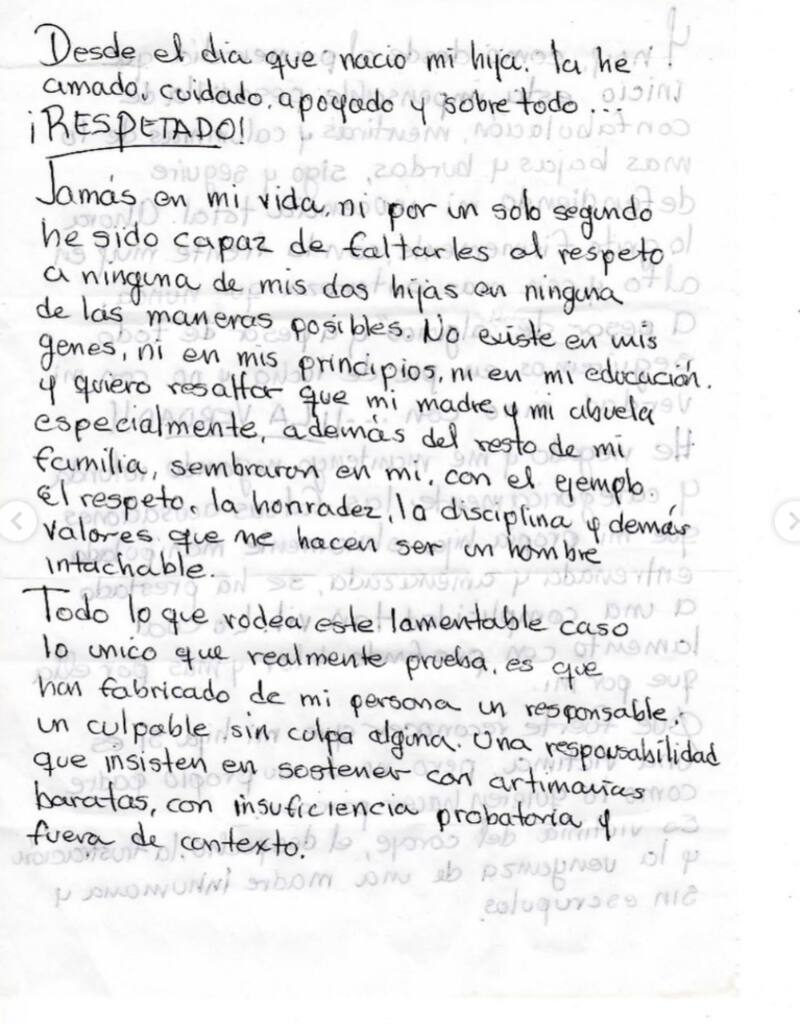 Desde el dia que nacio mi hija. la he
amado, cuidado, apoyado y sobre todo...
¡RESPETADO!
Jamás en mi vida, ni por un solo segundo
he sido capaz de faltarles al respeto
a ninguna de mis dos hijas en ninguna
de las maneras posibles. No existe en mis
genes, ni en mis principios, ni en mi educación.
y quiero resaltar que mi madre y mi abuela
especialmente, además del resto de mi
familia, sembraron en mi, con el ejemplo.
El respeto, la honradez, la disciplina y demás
valores que me hacen ser un hombre
intachable.
Todo lo que rodea este lamentable caso
lo unico que realmente prueba, es que
han fabricado de mi persona un responsable,
un culpable sin culpa alguna. Una responsabilidad
que insisten en sostener con artimañas
baratas, con insuficiencia probatoria y
fuera de contexto.